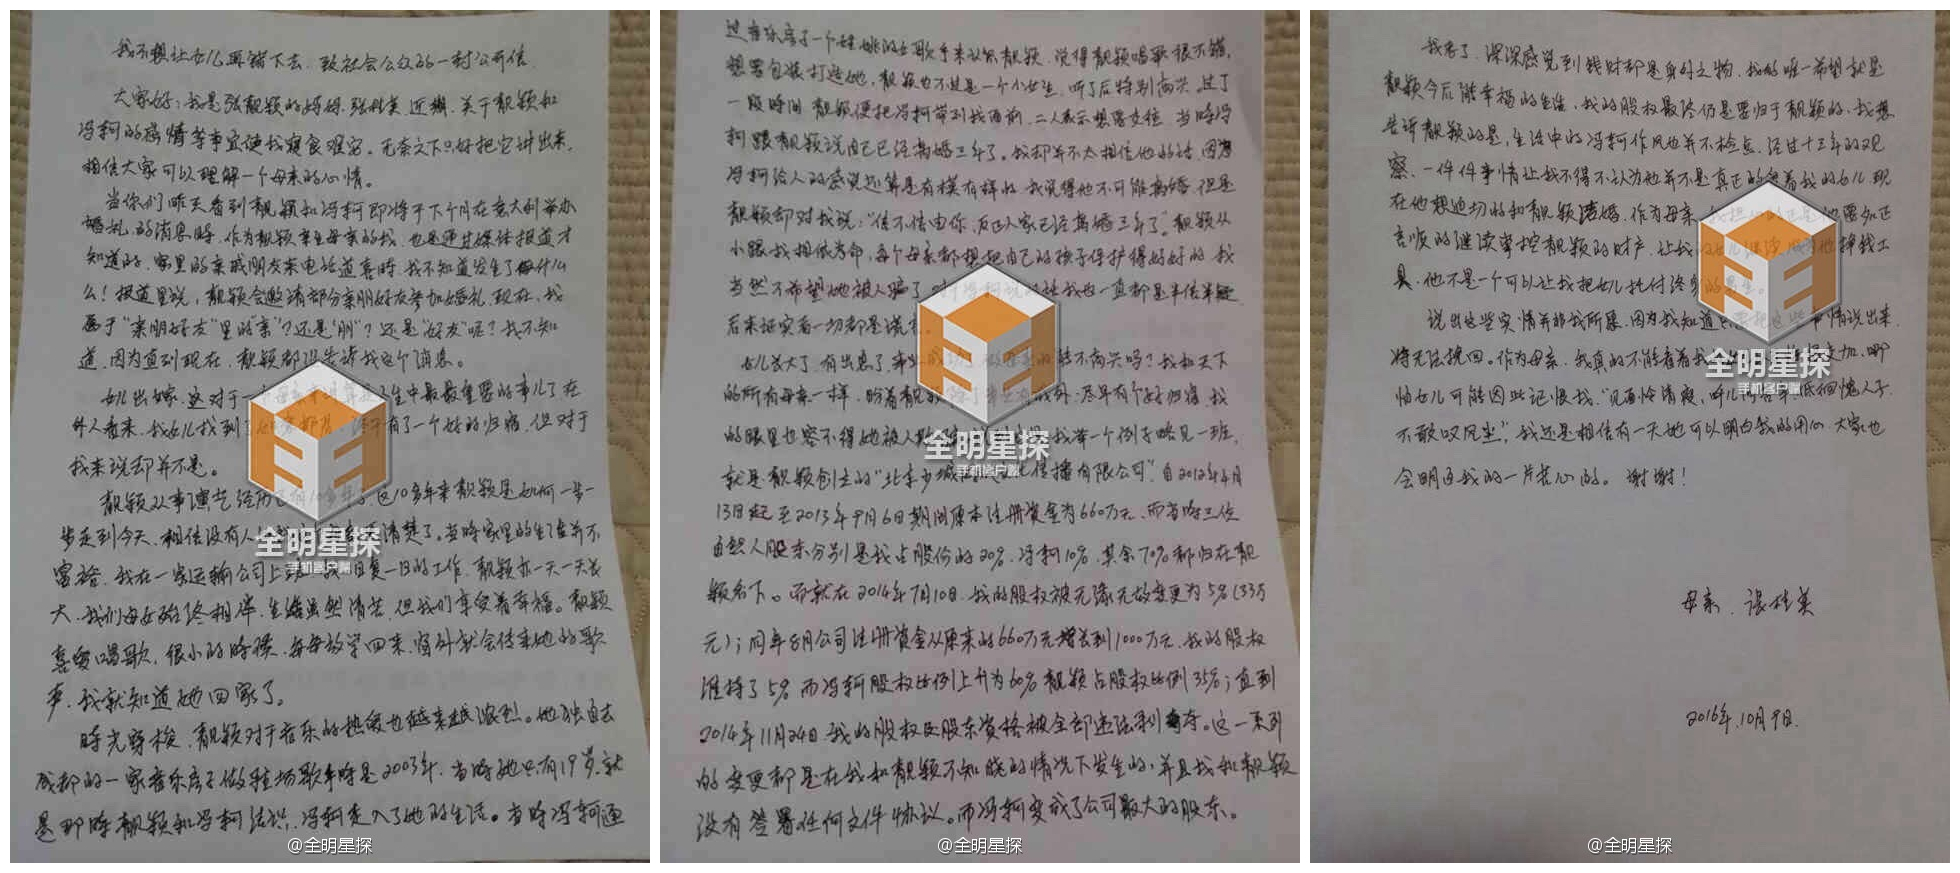 我不想让女儿再错下去,致社会公众的一封公开信
大家好,我是张靓颖的妈妈,张桂英,近期,关于靓颖和
冯轲的感情等事宜使我寝食难安。无奈之下只好把它讲出来,
相信大家可以理解一个母亲的心情。
当你们昨天看到靓颖和冯轲即将于下个月在意大利举办
婚礼的消息时,作为靓颖亲生母亲的我,也是通过媒体报道才
知道的,家里的亲戚朋友来电话道喜时,我不知道发生了什
么!报道里说,靓颖会邀请部分亲朋好友参加婚礼,现在,我
属于“亲朋好友”里的“亲”?还是“朋”?还是“好友”呢?我不知
道,因为直到现在,靓颖都没告诉我这个消息。
女儿出嫁,这对于一个母亲来说算是人生中最最重要的事儿了,在
外人看来,我女儿找到了 终于有了一个好的归宿,但对于
我来说却并不是。
靓颖从事演艺经历已有10多年了,这10多年来靓颖是如何一步一
步走到今天,相信没有人比我 清楚了。当时家里的生活并不
富裕,我在一家运输公司上班,我日复一日的工作,靓颖亦一天一天长
大,我们母女始终相伴,生活虽然清苦,但我们享受着幸福。靓颖
喜爱唱歌,很小的时候,每每放学回来,窗外就会传来她的歌
声,我就知道她回家了。
时光穿梭,靓颖对于音乐的热爱也越来越浓烈。她独自去
成都的一家音乐房子做驻场歌手时是2003年,当时她只有19岁,就
是那时靓颖和冯轲结识,冯轲走入了她的生活。当时冯轲通
过音乐房子一个姓姚的女歌手来认识靓颖,说得靓颖唱歌很不错,
想要包装打造她,靓颖也不过是一个小女生,听了后特别高兴,过了
一段时间,靓颖便把冯轲带到我面前,二人表示想要交往,当时冯
轲跟靓颖说自己已经离婚三年了。我却并不太相信他的话,因为
冯轲给人的感觉还算是有模有样的,我觉得他不可能离婚,但是
靓颖却对我说:“信不信由你,反正人家已经离婚三年了”,靓颖从
小跟我相依为命,每个母亲都想把自己的孩子保护得好好的,我
当然不希望她被人骗了, 冯轲说的话我也一直都是半信半疑,
后来证实着一切都是谎言。
女儿长大了,有出息了,事业成功了,做母亲的能不高兴吗?我和天下
的所有母亲一样,盼着靓颖除了事业有成外,尽早有个好归宿,我
的眼里也容不得她被人欺 我举一个例子略见一斑,
就是靓颖创立的“北京少城 文化传播有限公司”,自2012年4月
13日起至2013年9月6日期间原本注册资金为660万元,而当时三位
自然人股东分别是我占股份的20%,冯轲10%,其余70%都归在靓
颖名下。而就在2014年7月10日,我的股权被无缘无故变更为5%(33万
元);同年8月公司注册资金从原来的660万元增长到1000万元,我的股权
维持了5%,而冯轲股权比例上升为60%,靓颖占股权比例35%;直到
2014年11月24日,我的股权及股东资格被全部违法剥夺。这一系列
的变更都是在我和靓颖不知晓的情况下发生的,并且我和靓颖
没有签署任何文件协议。而冯轲变成了公司最大的股东。
我老了,深深感觉到钱财都是身外之物,我的唯一希望就是
靓颖今后能幸福的生活,我的股权最终仍是要归于靓颖的,我想
告诉靓颖的是,生活中的冯轲作风也并不检点,经过十三年的观
察,一件件事情让我不得不认为他并不是真正的爱着我的女儿,现
在他想迫切的和靓颖结婚,作为母亲,我担心的正是他要如正
言顺的继续掌控靓颖的财产,让我的女儿继续成为他挣钱工
具,他不是一个可以让我把女儿托付终身的男生。
说出这些实情并非我所愿,因为我知道只要把这些事情说出来,
将无法挽回。作为母亲,我真的不能看着我 加,哪
怕女儿可能因此记恨我,“见面怜清瘦,呼儿问苦辛,低徊愧人子,
不敢叹风尘”,我还是相信有一天她可以明白我的用心,大家也
会明白我的一片苦心的。谢谢!
母亲:张桂英
2016年10月9日
全明星探
手机客户端
@全明星探
全明星探
手机客户端
@全明星探
全明星探
手机客户端
@全明星探